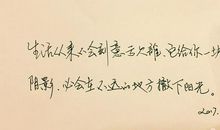 生活从来不会刻意亏欠谁,它给你一块
阴影,必会在不远的地方撒下阳光。
2017.